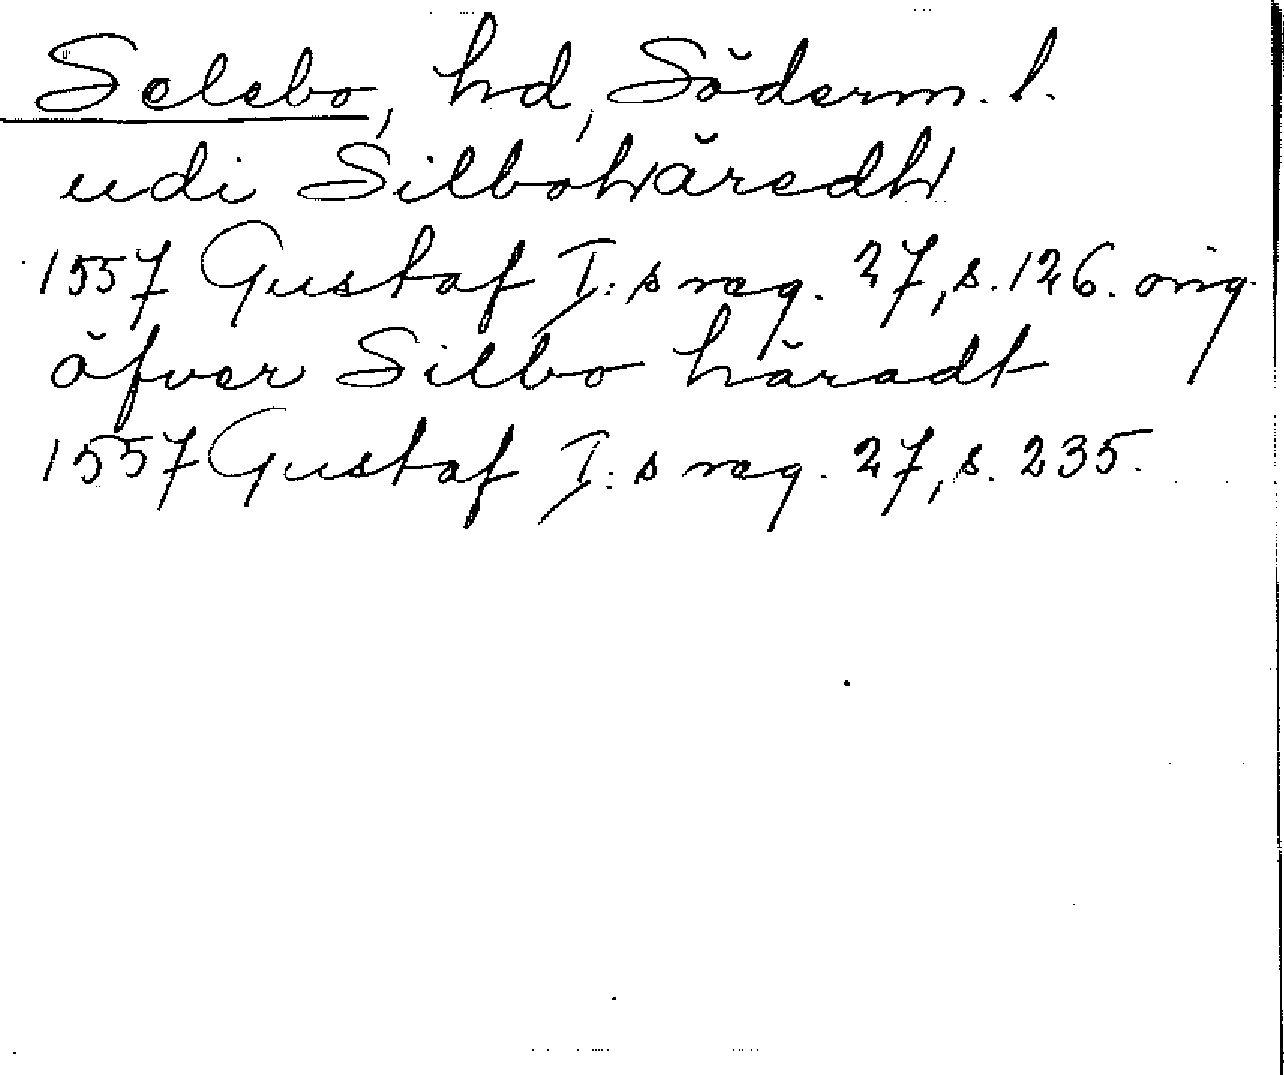 Selebo, hd, Söderm. l.
udi Silbohäredh
1557 Gustaf I:s reg. 27, s. 126. orig.
öfver Silbo häradt
1557 Gustaf I:s reg. 27, s. 235.